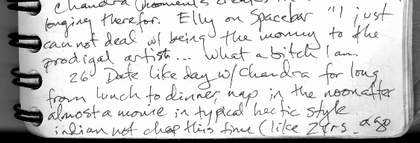 Chandra
longing therefor. Elly on Spacebar "I just
cannot deal w/ being the mommy to the
prodigal artist... What a bitch I am.
26 Date like day w/ Chandra for long
from lunch to dinner, nap in the noonafter
almost a movie in typical hectic style
indian not cheap this time (like 2 yrs ago